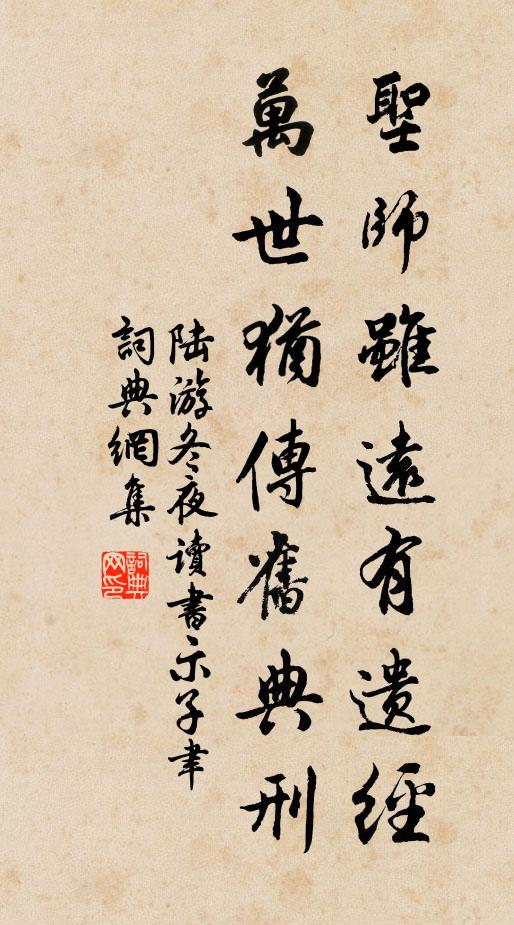 聖師雖遠有遺經
萬世猶傳舊典刑
陸游冬夜讀書示子聿
詞典網集
詞典网印